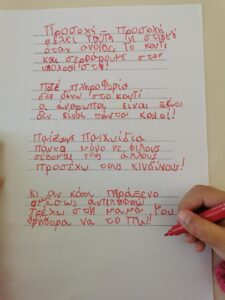 Προσοχή - Προσοχή
θέλει τούτη η στιγμή
όταν ανοίγω το κουτί
και σερφάρουμε στον
υπολογιστή!
Ποτέ πληροφορία
δεν δίνω στο κουτί
οι άνθρωποι είναι ξένοι
δεν είναι πάντα καλοί!
Παίζουμε παιχνίδια
πάντα μόνο με φίλους
σέβομαι τους άλλους
προσέχω τους κινδύνους!
Κι αν κάτι παράξενο
αμέσως αντιληφθώ
τρέχω στη μαμά μου
γρήγορα να το πω!